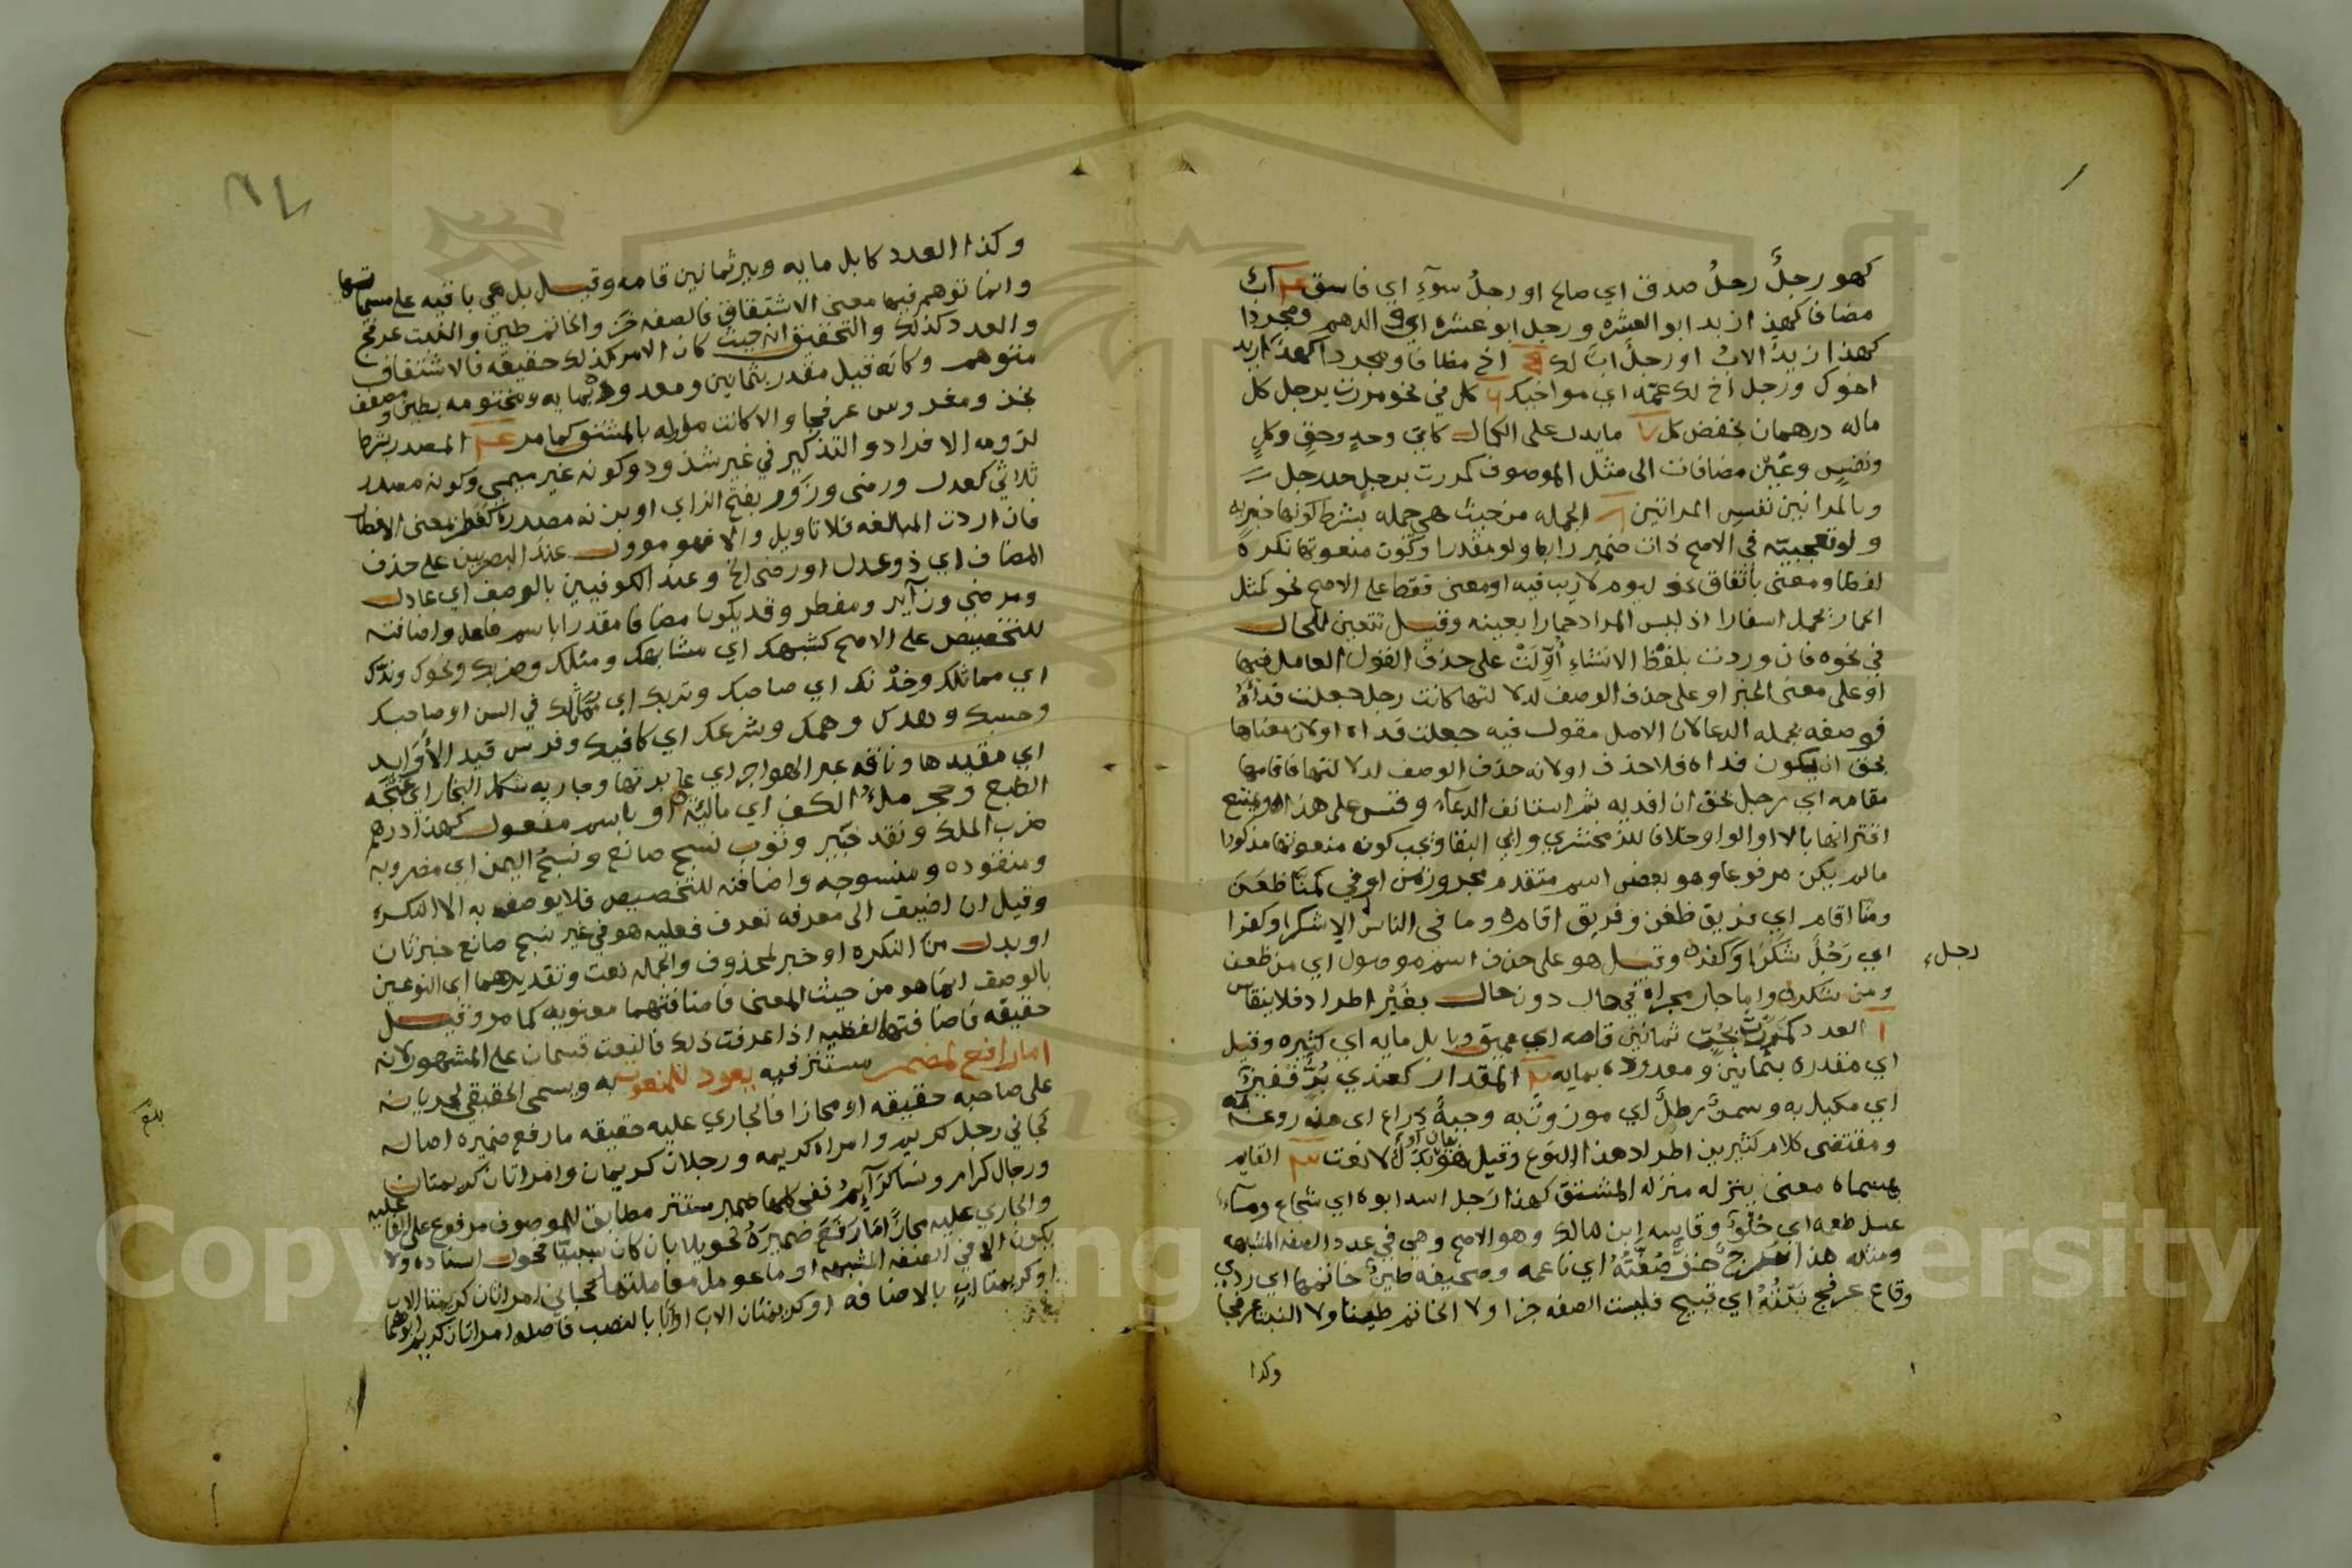 كهو رجلٌ رجلُ صدق اي صالح او رجلُ سوءٍ اي فاسق اب
مضافا كهذا زيد ابو العشره و رجل ابو عشره اي الدهم ومجردا
كهذا زيدٌ الابُ او رجلٌ ابٌ لك اخ مضافا ومجردا كهذا زيد
اخوك ورجل اخ لك عمّه اي مواخيك كل في نحو مررت برجل كل
ماله درهمان بخفض كل ما يدل على الكمال كايّ وجدٍ وحقٍ وكلٍ
ونفسٍ وعينٍ مضافات الى مثل الموصوف كمررت برجلٍ جد رجل
وبالمراتين نفسِ المراتين الجمله من حيث هي جمله بشرط كونها خبريه
ولو تعجبيّه في الاصح ذات ضمير رابط ولو مقدرا وكون منعوتها نكرةً
لفظا ومعنى باتفاق نحو ليوم لا ريب فيه او معنى فقط على الاصح نحو كمثل
الحمار يحمل اسفارا اذ ليس المراد حمارا بعينه وقيل تتعين للحال
في نحوه فان وردت بلفظ الانشاءِ أُوِّلَتْ على حذف القول العامل فيها
او على معنى الخبر او على حذف الوصف لدلالتها كانت رجل جعلت فداءَهُ
فوصفه بجمله الدعا لان الاصل مقول فيه جعلت فداه او لان معناها
بحق ان يكون فداه فلا حذف او لانه حذف الوصف لدلالتها فاقامها
مقامه اي رجل بحق ان افديه ثم استانف الدعاء وقس على هذا ويمتنع
اقترانها بالا او الواو خلافا للزمخشري وابي البقا ويجب كونه منعوتها مذكورا
مالم يكن مرفوعا وهو بعض اسم متقدم مجرور بمن او في كمنّا ظعَنَ
ومنّا اقام اي فريق ظعن وفريق اقام وما في الناس الا شكرا وكفرا
اي رَجُلٌ شَكَرَ او كفر وقيل هو على حذف اسم موصول اي من ظعن
رجل
ومن شكر وانما جاز مجراه في حال دون حال بغيْر اطراد فلا ينقاس
العدد كمررت ببُرٍّ ثمانين قامه اي عميق وبابل مايه اي كثيره وقيل
اي مقدره بثمانين ومعدوده بمايه المقدار كعندي بُرٌّ قفيزٌ
اي مكيل به وسمنٌ رطلٌ اي موزون به وجبةٌ ذراع اي مذروعه
ومقتضى كلام كثيرين اطراد هذا النوع وقيل هو بدل لا نعت القايم
بمسماه معنى ينزله منزله المشتق كهذا رجل اسد ابوه اي شجاع وماءٌ
عسل طعمه اي حلوٌ وقاسه ابن مالك وهو الاصح وهي في عدد الصفه المشبهه
ومثله هذا سرج خزٌّ صُفَّتُهُ اي ناعمه وصحيفه طينٌ خاتمها اي ردي
وقاع عرفج نبْتُهُ اي قبيح فليست الصفه خزا ولا الخاتم طينا ولا النبت عرفجا
وكذا
وكذا العدد كابل مايه وبير ثمانين قامه وقيل بل هي باقيه على مسماتها
وانما توهم فيها معنى الاشتقاق فالصفه خز والخاتم طين والنبت عرفج
والعدد كذلك والتحقيق انه حيث كان الامر كذلك حقيقه فالاشتقاق
متوهم وكانه قيل مقدر بثمانين ومعدود بمايه ومختومه بطين ومصفف
بخز ومغروس عرفجا والا كانت مؤوله بالمشتق كما مر المصدر بشرط
لزومه الافراد والتذكير في غير شذوذ وكونه غير ميمي وكونه مصدر
ثلاثي كعدل ورضى وزَور بفتح الزاي او بزنه مصدره كفطر بمعنى الافطار
فان اردت المبالغه فلا تاويل والا فهو موول عند البصريين على حذف
المضاف اي ذو عدل او رضى الخ وعند الكوفيين بالوصف اي عادل
ومرضي وزاير ومفطر وقد يكون مضافا مقدرا باسم فاعل واضافته
للتخصيص على الاصح كشبهك اي مشابهك ومثلك وضربك ونحوك وندّك
اي مماثلك وخِدْنك اي صاحبك وتربك اي مماثلك في السن او صاحبك
وحسبك وهدك وهمك وشرعك اي كافيك وفرس قيد الأوابد
اي مقيدها وناقه عبر الهواجر اي عابرتها وجاريه شكل النجار اي
الطبع وحجر ملءُ الكف اي مالئه او باسم مفعول كهذا درهم
ضرب الملك ونقد خبير وثوب نسج صانع ونسجُ اليمن اي مضروبه
ومنقوده ومنسوجه واضافته للتخصيص فلا يوصف به الا النكره
وقيل ان اضيف الى معرفه تعرف فعليه هو في غير نسج صانع خبر ثان
او بدل من النكره او خبر لمحذوف والجمله نعت وتقديرهما اي النوعين
بالوصف انما هو من حيث المعنى فاضافتهما معنويه كما مر وقيل
حقيقه فاضافتها لفظيه اذا عرفت ذلك فالنعت قسمان على المشهور لانه
اما رافع لمضمر مستتر فيه يعود للمنعوت ويسمى الحقيقي لجريانه
على صاحبه حقيقه او مجازا فالجاري عليه حقيقه ما رفع ضميره اصاله
كجاني رجل كريم وامراه كريمه ورجلان كريمان وامراتان كريمتان
ورجال كرام ونسا كرايم ففي كلها ضمير مستتر مطابق للموصوف مرفوع على الفاعليه
والجاري عليه مجازًا ما رَفَعَ ضميرَهُ تحويلا بان كان سببيّا فحول اسناده ولا
يكون الا في الصفه المشبهه او ما عومل معاملتها كجاني امراتان كريمتا الاب
او كريمتا ابٍ بالاضافه او كريمتان الاب او ابًا بالنصب فاصله امراتان كريم ابوهما